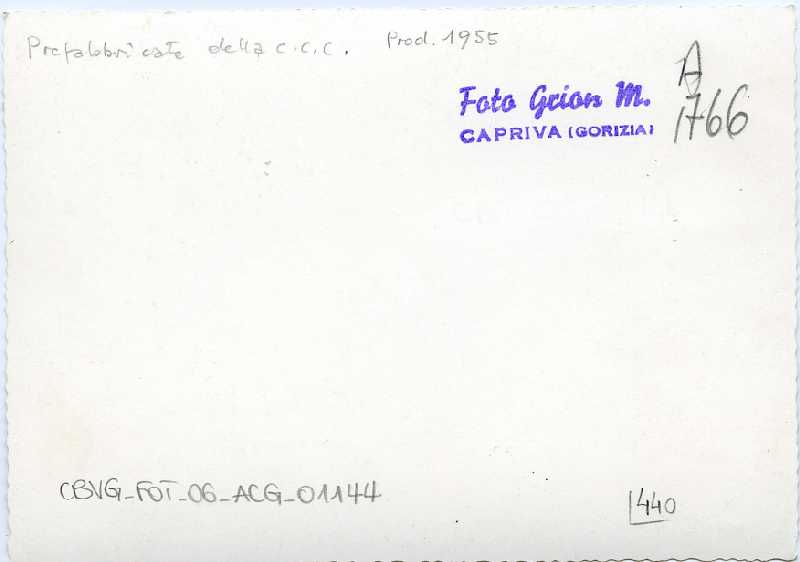 Prefabbricate della c.c.c. Prod. 1955
Foto Grion M.
CAPRIVA (GORIZIA)
A
1766
CBVG_FOT_06_ACG_01144
440